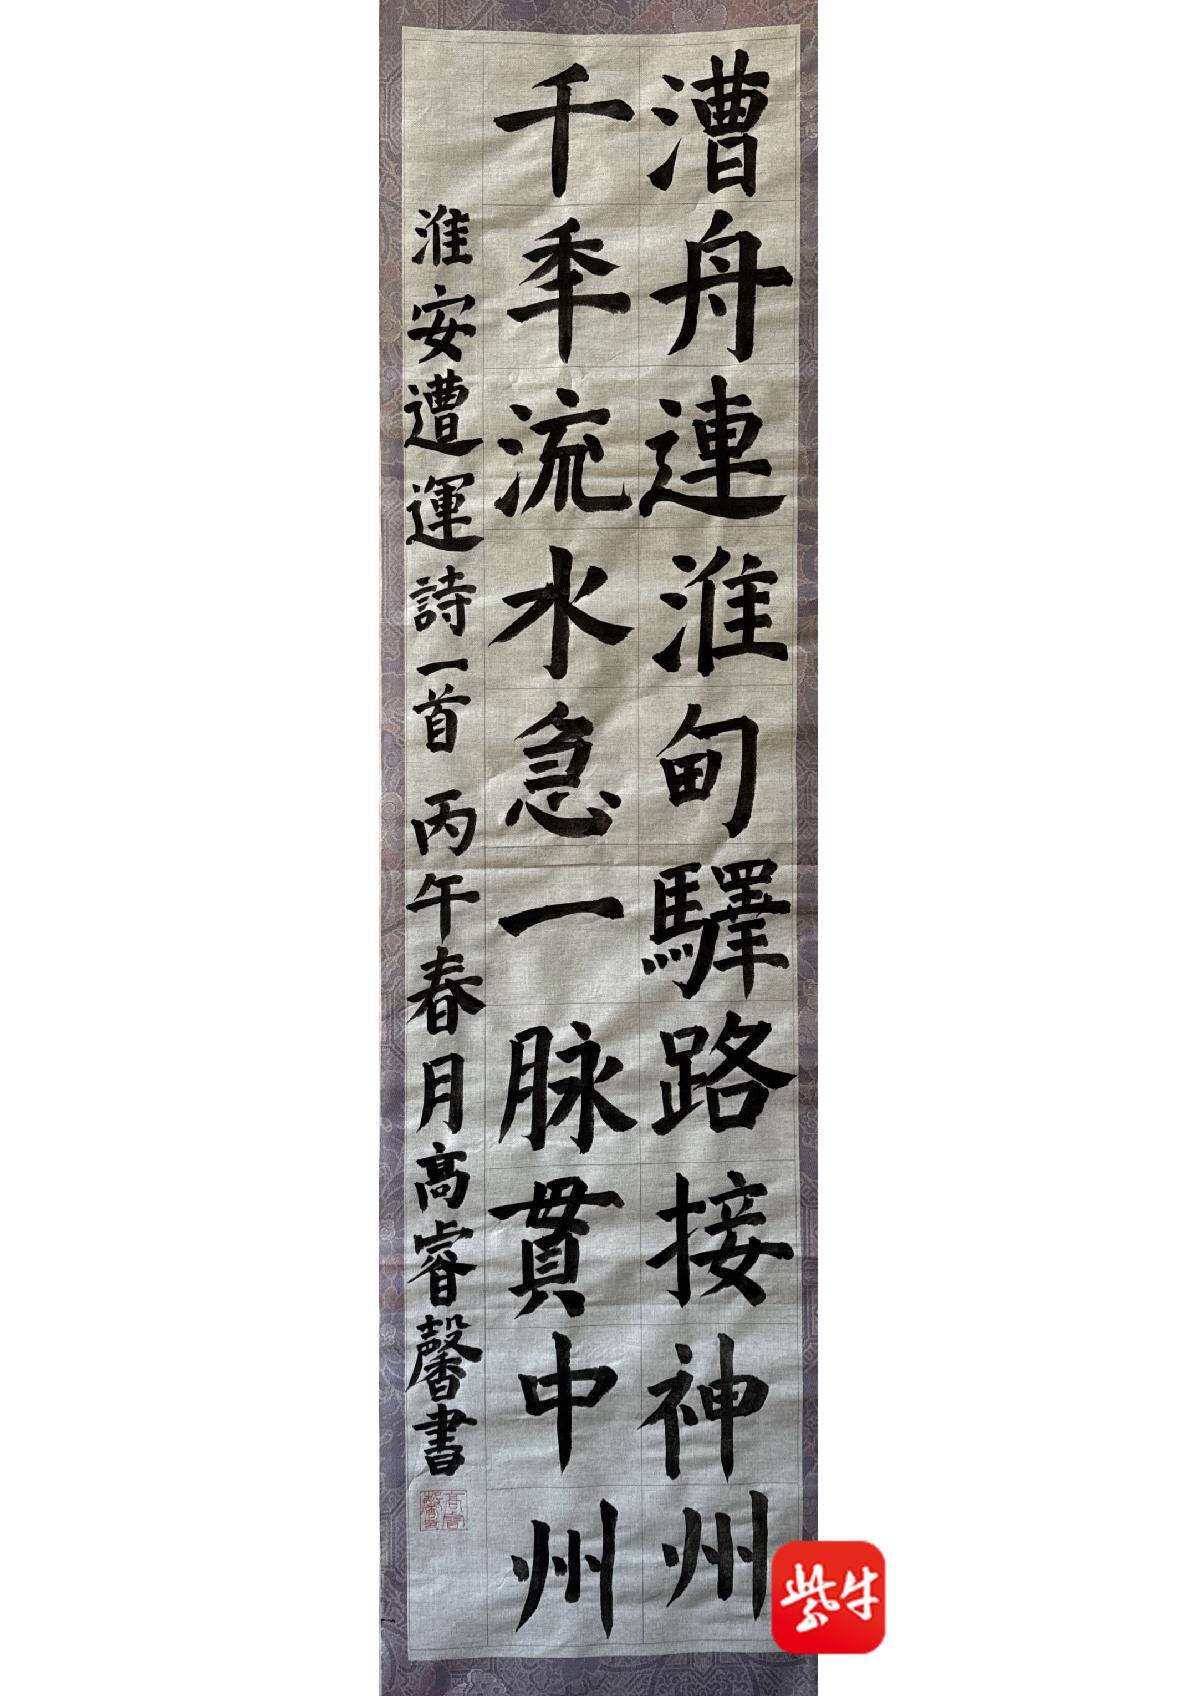 漕舟連淮甸驛路接神州
千年流水急一脉貫中州
淮安遭運詩一首 丙午春月高睿馨書
紫牛